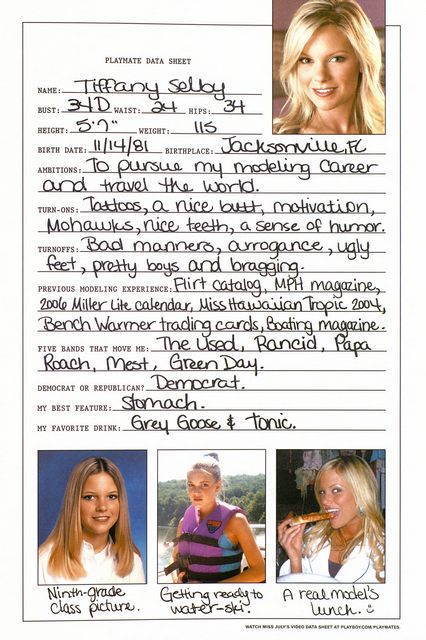 PLAYMATE DATA SHEET
NAME: Tiffany Selby
BUST: 34D WAIST: 24 HIPS: 34
HEIGHT: 5'7" WEIGHT: 115
BIRTH DATE: 11/14/81 BIRTHPLACE: Jacksonville, FL
AMBITIONS: To pursue my modeling career
and travel the world.
TURN-ONS: Tattoos, a nice butt, motivation,
Mohawks, nice teeth, a sense of humor.
TURNOFFS: Bad manners, arrogance, ugly
feet, pretty boys and bragging.
PREVIOUS MODELING EXPERIENCE: Flirt catalog, MPH magazine,
2006 Miller Lite calendar, Miss Hawaiian Tropic 2004,
Bench Warmer trading cards, Boating magazine.
FIVE BANDS THAT MOVE ME: The Used, Rancid, Papa
Roach, Mest, Green Day.
DEMOCRAT OR REPUBLICAN? Democrat.
MY BEST FEATURE: Stomach.
MY FAVORITE DRINK: Grey Goose & tonic.
Ninth-grade
class picture.
Getting ready to
water-ski.
A real model's
lunch. :)
WATCH MISS JULY'S VIDEO DATA SHEET AT PLAYBOY.COM/PLAYMATES.